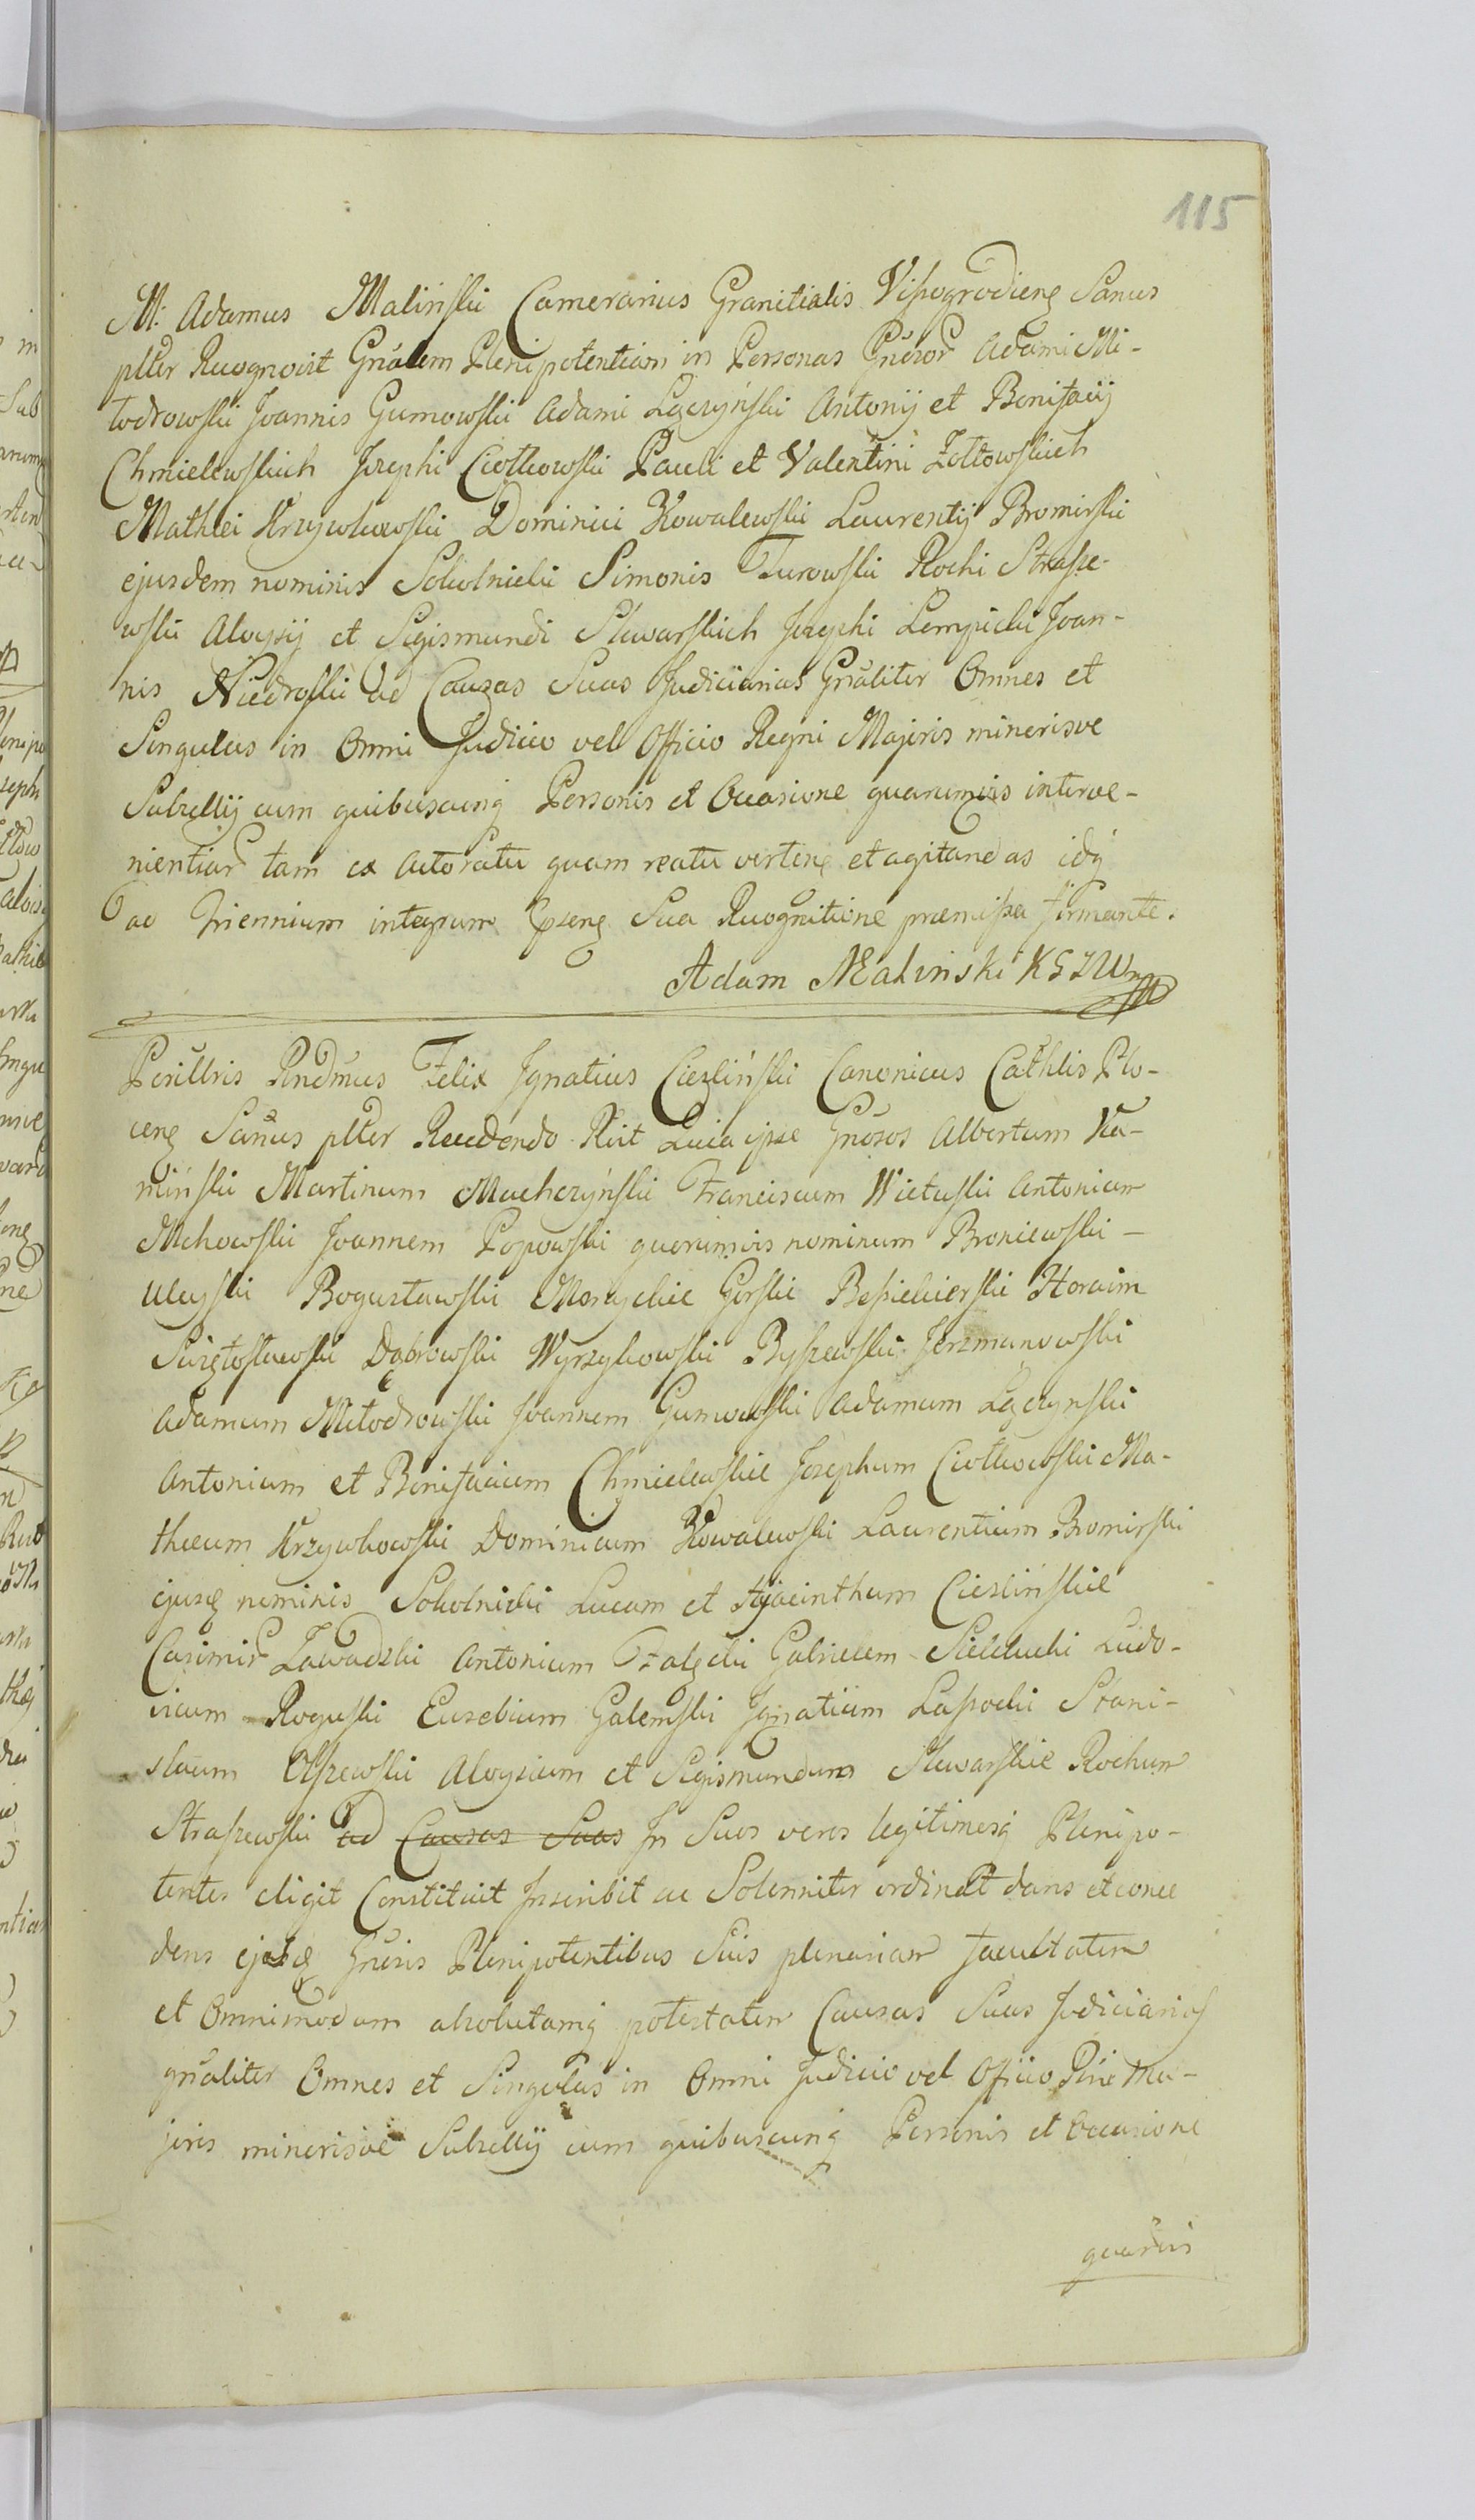 115
M: Adamus Maliński Camerarius Granitialis Vissogrodienẹ Sanus
pltęr Recognovit Gnalem Plenipotentiam in Personas Gnesor Adami Mi-
łodrowski Joannis Gumowski Adami Łączyński Antonij et Bonifacij
Chmielewskich Josephi Ciołkowski Pauli et Valentini Żołtowskich
Mathei Krzywkowski Dominici Kowalewski Laurentij Bromirski
ejusdem nominis Sokolnicki Simonis Turowski Rochi Strasze-
wski Aloysij et Segismundi Skwarskich Josephi Lempicki Joan-
nis Niedroski ad Causas Suas Judiciarias Gnaliter Omnes et
Singulas in Omni Judicio vel Officio Regni Majoris minorisve
Subsellij cum quibuscunq Personis et Occasione quarumvis interve-
nientiar tam ex Actoratu quam reatu verten et agitandas idq
ad Triennium integrum Epsenę Sua Recognitione præmissa firmante.
Adam Malinski KGZW
Perillris Rndmus Felix Ignatius Ciesliński Canonicus Cathlis Plo-
cenę Sanus pltęr Recedendo Rrit Quia ipse Gnosos Albertum Ka-
miński Martinum Machczyński Franciscum Wietuski Antonium
Mchowski Joannem Popowski quorumvis nominum Broniewski -
Uleyski Bogusławski Morzyckie Gorski Bessiekierski Horaim
Swiętosławski Dąbrowski Wyrzykowski Byszewski Jerzmanowski
Adamum Miłodrowski Joannem Gumowski Adamum Łączynski
Antonium et Bonifacium Chmielewskie Josephum Ciołkowski Ma-
theum Krzywkowski Dominicum Kowalewski Laurentium Bromirski
ejusd nominis Sokolnicki Lucam et Hyacinthum Ciesliński​e
Casimir Zawadzki Antonium Załęcki Gabrielem Sielelucki Ludo-
vicum Roguski Eusebium Galemski Ignatium Lasocki Stani-
slaum Olszewski Aloysium et Segismundum Skwarskie Rochum
Straszewski ad Causas Suas In Suos veros legitimosq Plenipo-
tentes eligit Constituit Inscribit ac Solenniter ordinat dans et conce
dens ejsd Gnosis Plenipotentibus Suis plenariam facultatem
et Omnimodam absolutamq potestatem Causas Suas Judiciarias
gnaliter Omnes et Singulas in Omni Judicio vel Officio Rni Ma-
joris minorisve Subsellij cum quibuscunq Personis et Occasione
quarvis